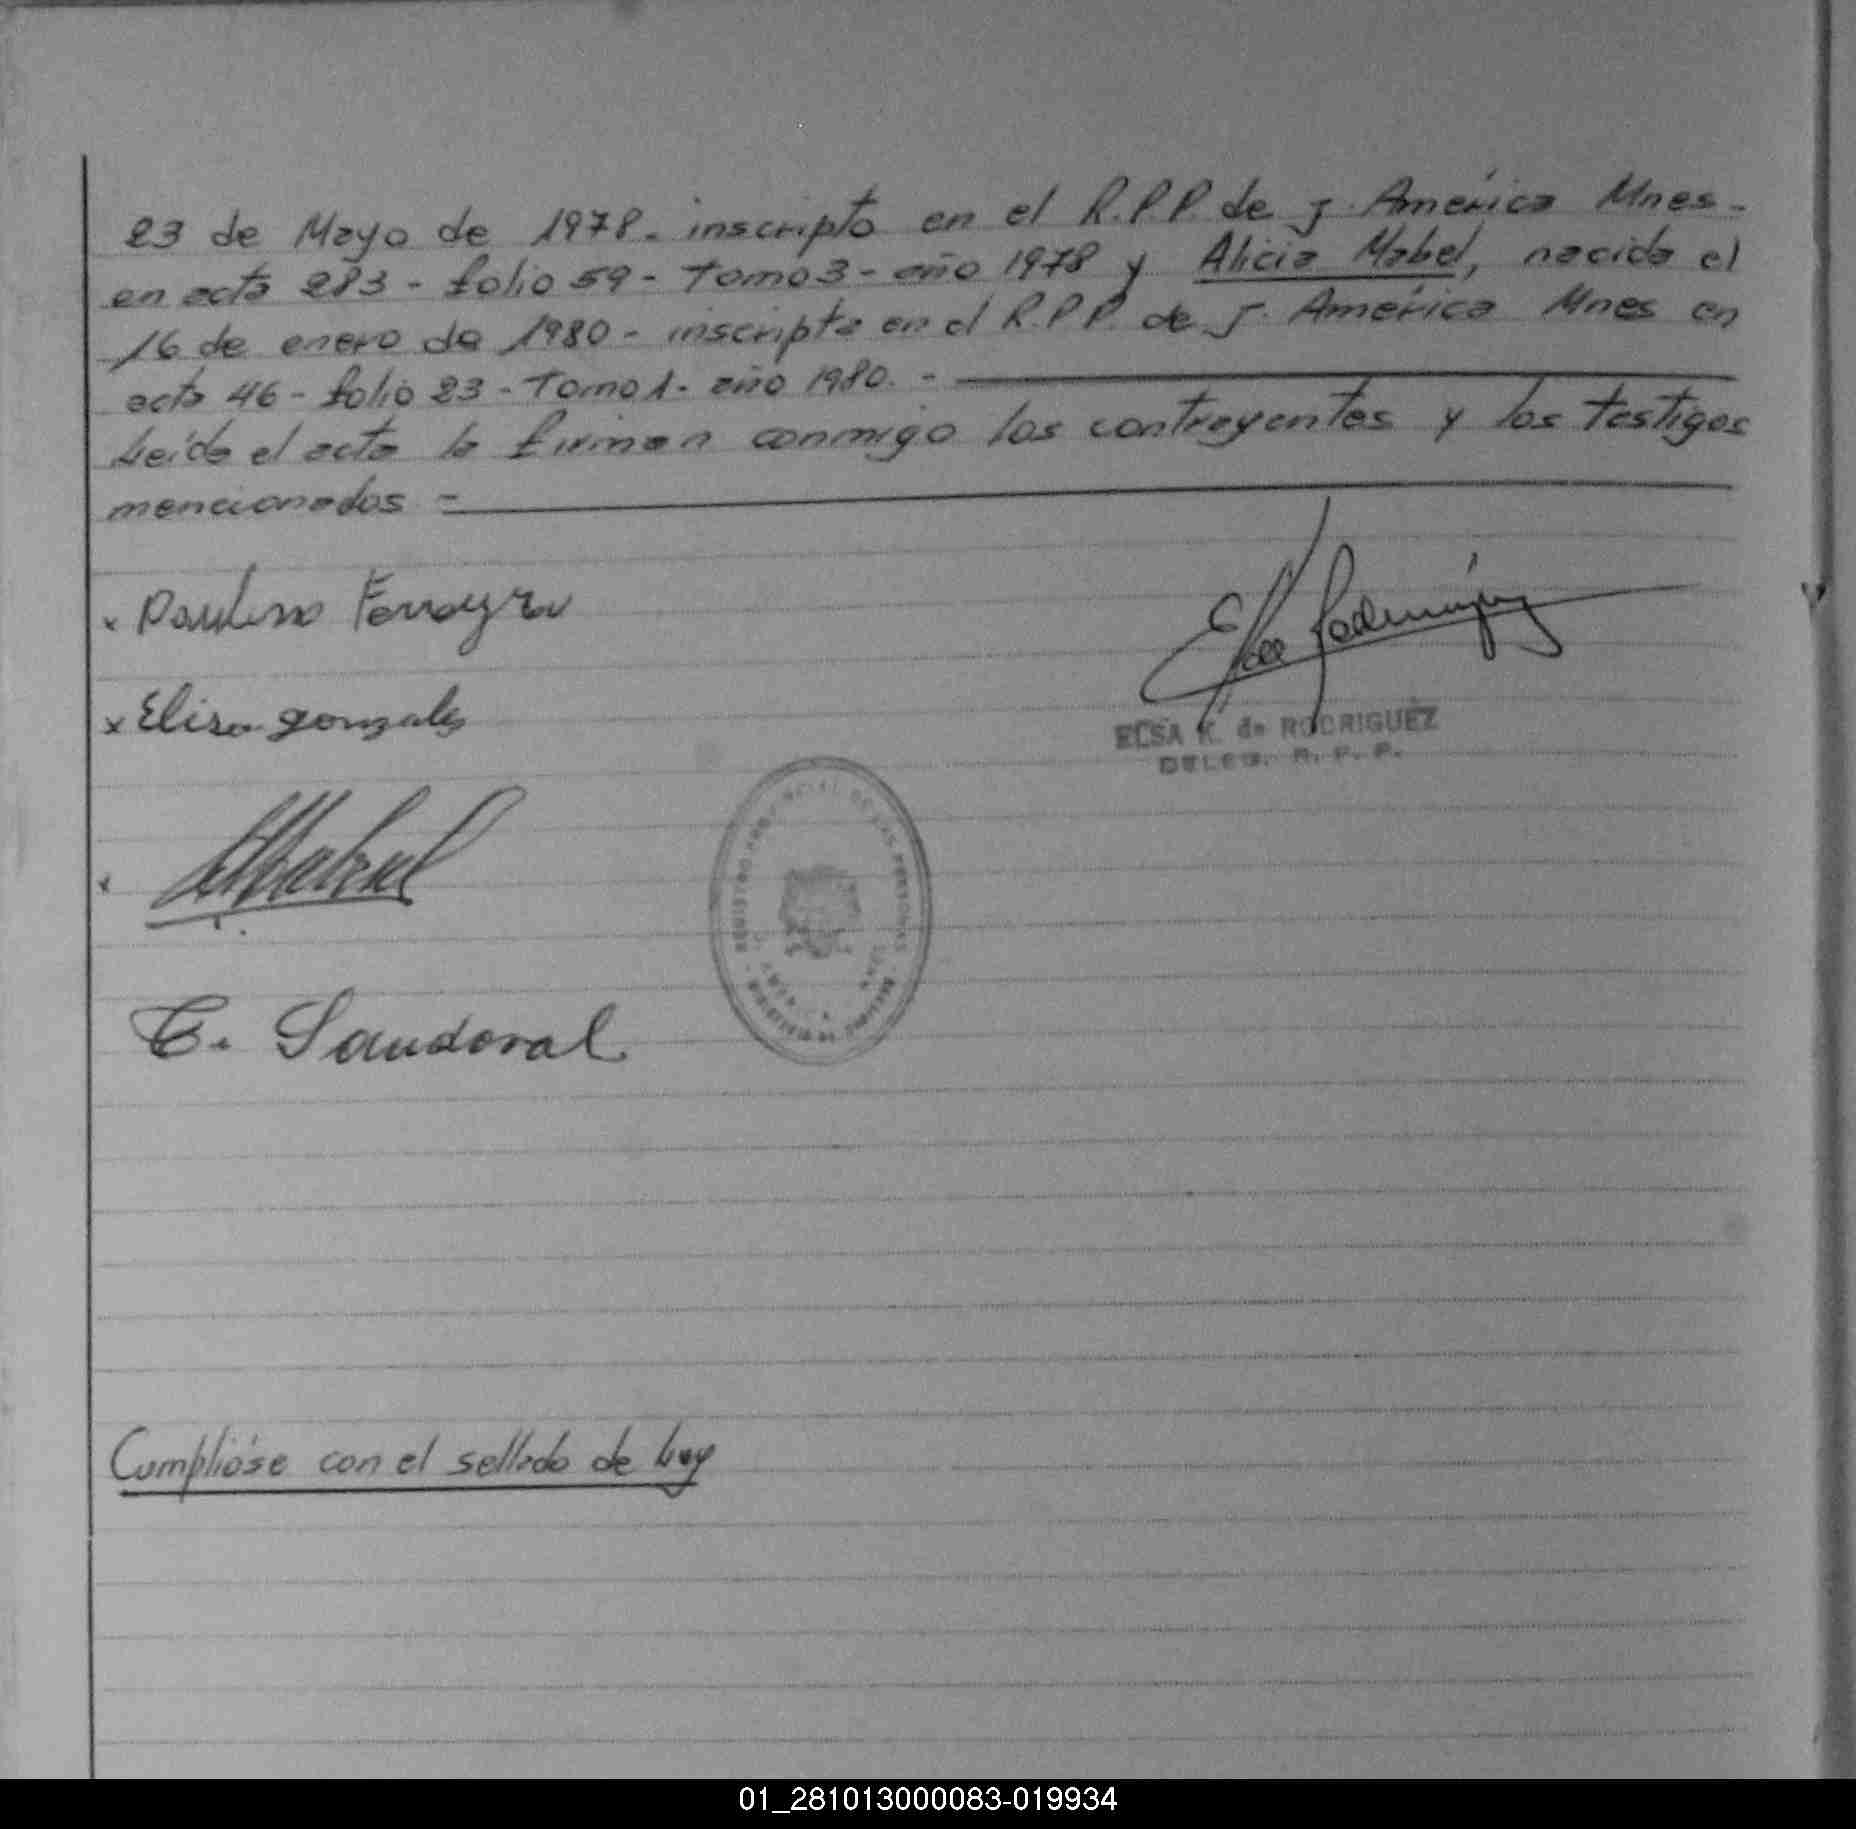 23 de Mayo de 1978. inscripto en el R.P.P. de J. América Mnes-
en acta 283 - folio 59 - Tomo 3 - año 1978 y Alicia Mabel, nacida el
16 de enero de 1980 - inscripta en el R.P.P. de J. América Mnes en
acta 46 - folio 23 - Tomo 1 - año 1980. -
Leída el acta la firman conmigo los contrayentes y los testigos
mencionados -
x Paulino Ferreyra
x Elisa gonzalez
ELSA K. de RODRIGUEZ
DELEG. R. P. P.
REGISTRO PROVINCIAL DE LAS PERSONAS
C. Sandoval
Cumplióse con el sellado de Ley
01_281013000083-019934